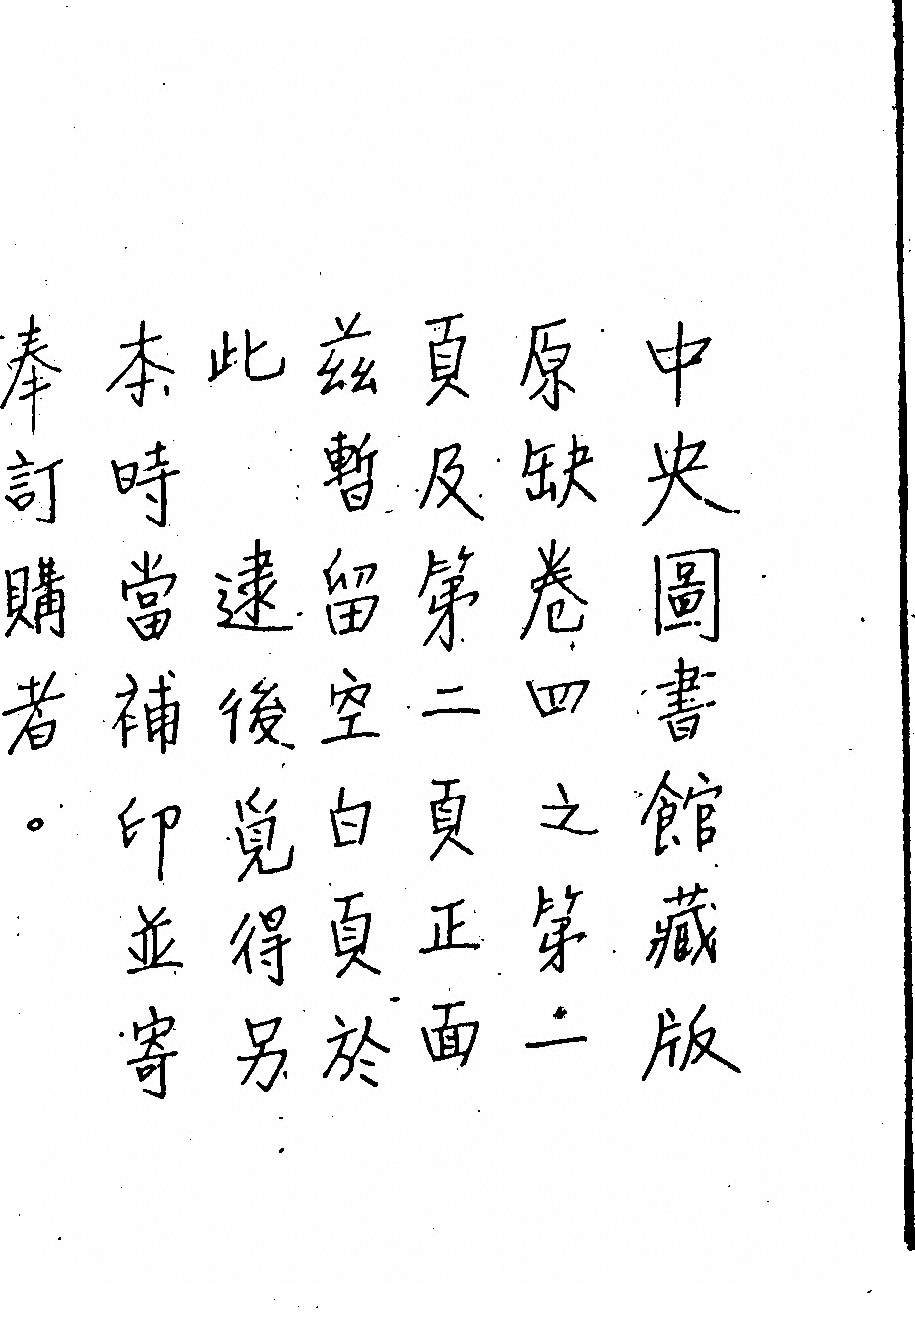 中央圖書館藏版
原缺卷四之第二
頁及第二頁正面
茲暫留空白頁於
此　逮後覓得另
本時當補印並寄
奉訂購者。